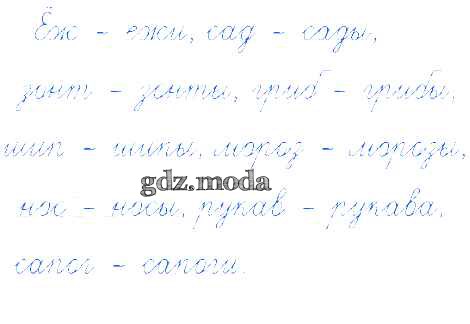 Ёж - ежи, сад - сады,
зонт - зонты, гриб - грибы,
шип - шипы, мороз - морозы,
gdz.moda
нос - носы, рукав - рукава,
сапог - сапоги.